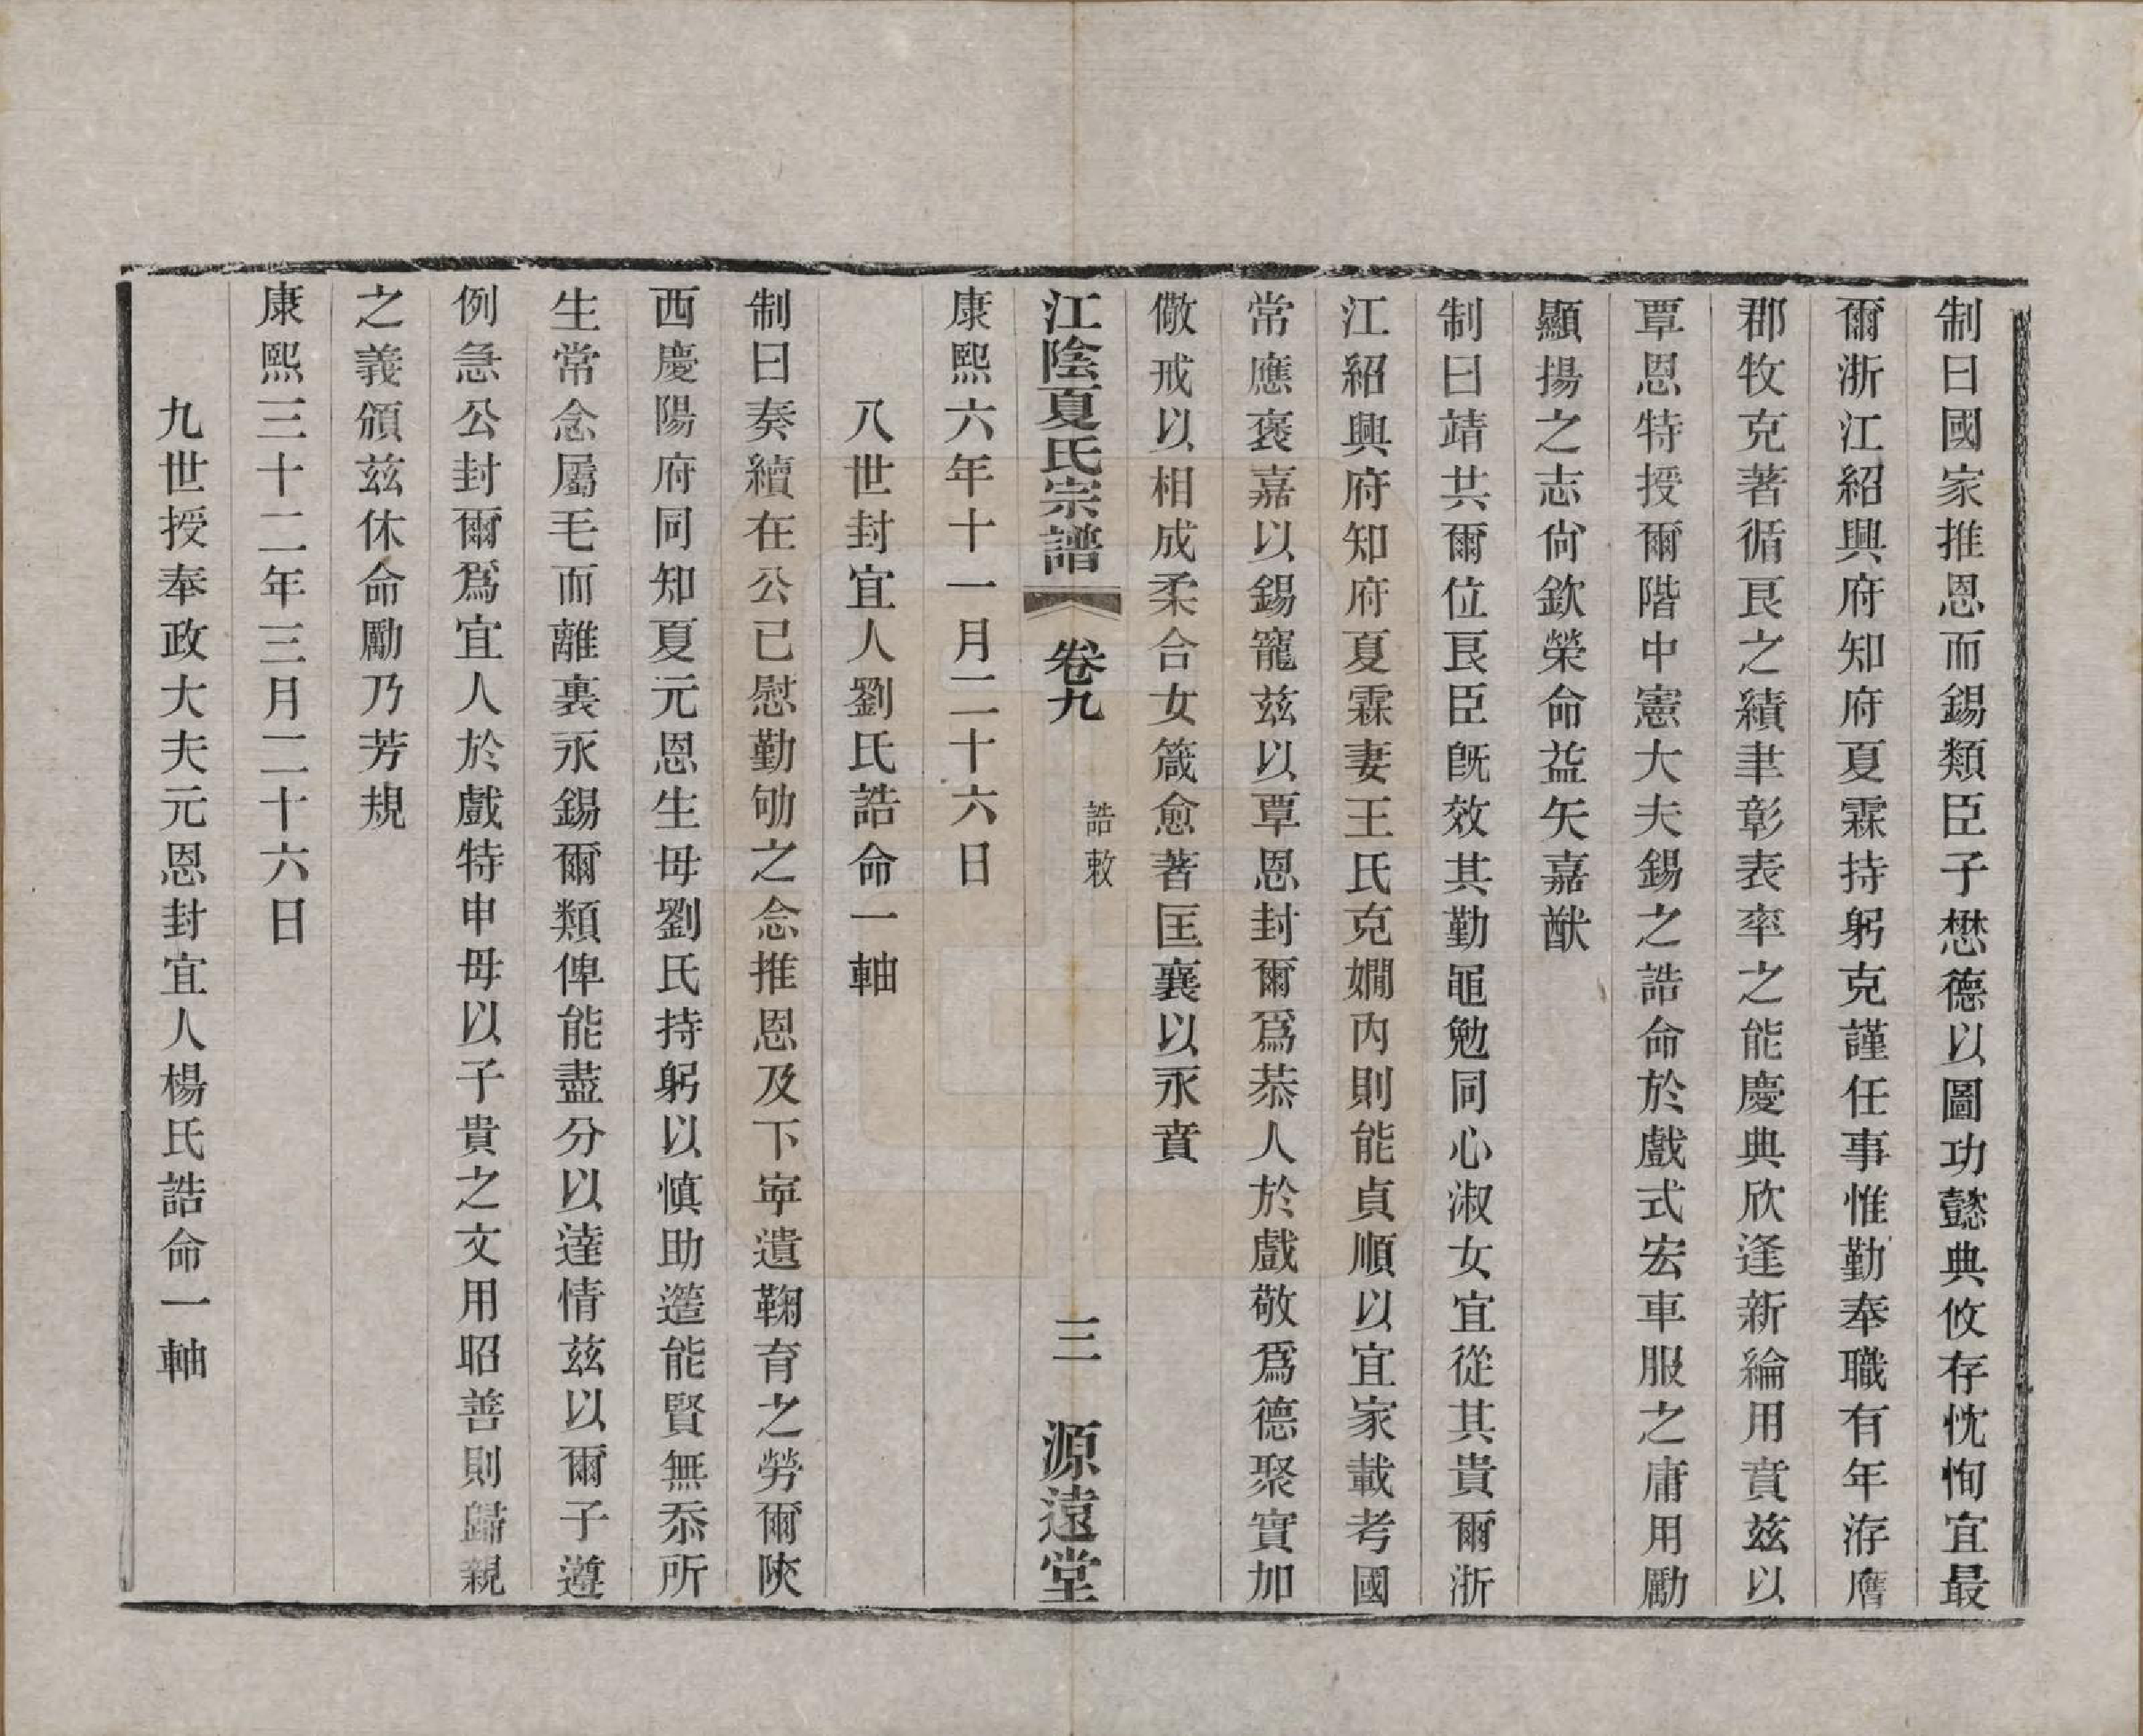 制曰國家推恩而錫類臣子懋德以圖功懿典攸存忱恂宜最
爾浙江紹興府知府夏霖持躬克謹任事惟勤奉職有年洊膺
郡牧克著循良之績聿彰表率之能慶典欣逢新綸用賁茲以
覃恩特授爾階中憲大夫錫之誥命於戲式宏車服之庸用勵
顯揚之志尙欽榮命益矢嘉猷
制曰靖共爾位良臣旣效其勤黽勉同心淑女宜從其貴爾浙
江紹興府知府夏霖妻王氏克嫺內則能貞順以宜家載考國
常應褒嘉以錫寵茲以覃恩封爾爲恭人於戲敬爲德聚實加
儆戒以相成柔合女箴愈著匡襄以永賁
江陰夏氏宗譜 卷九 誥敕 三 源遠堂
康熙六年十一月二十六日
八世封宜人劉氏誥命一軸
制曰奏績在公已慰勤劬之念推恩及下寧遺鞠育之勞爾陝
西慶陽府同知夏元恩生母劉氏持躬以慎助簉能賢無忝所
生常念屬毛而離裏永錫爾類俾能盡分以達情茲以爾子遵
例急公封爾爲宜人於戲特申母以子貴之文用昭善則歸親
之義頒茲休命勵乃芳規
康熙三十二年三月二十六日
九世授奉政大夫元恩封宜人楊氏誥命一軸